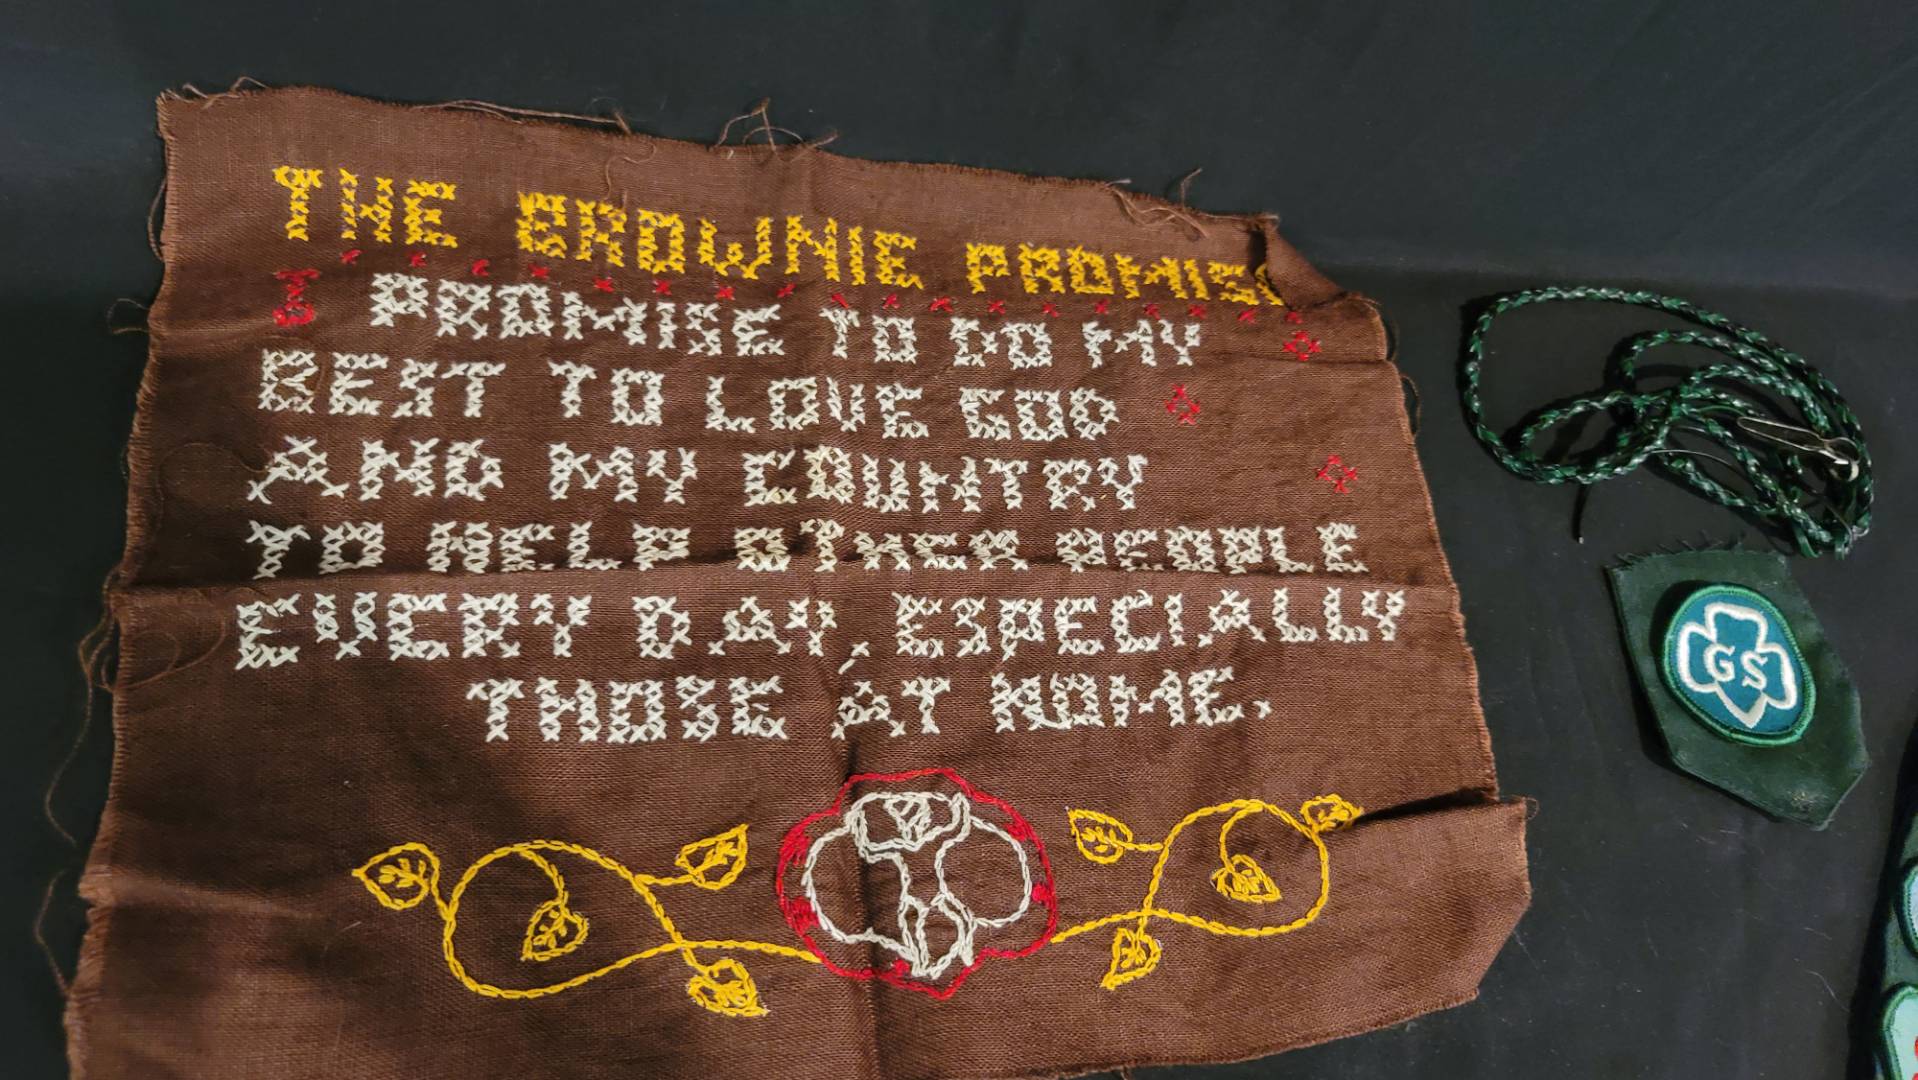 THE BROWNIE PROMISE
I PROMISE TO DO MY
BEST TO LOVE GOD
AND MY COUNTRY
TO HELP OTHER PEOPLE
EVERY DAY, ESPECIALLY
THOSE AT HOME.
GS